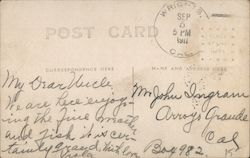 WRIGHTS
SEP
5 PM
1911
CAL.
POST CARD
CORRESPONDENCE HERE
NAME AND ADDRESS HERE
My Dear Uncle
We are here enjoy-
ing the fine weather
and fish it is cer-
tainly grand.
Mr John Ingram
Arroyo Grande
Cal
Box 982